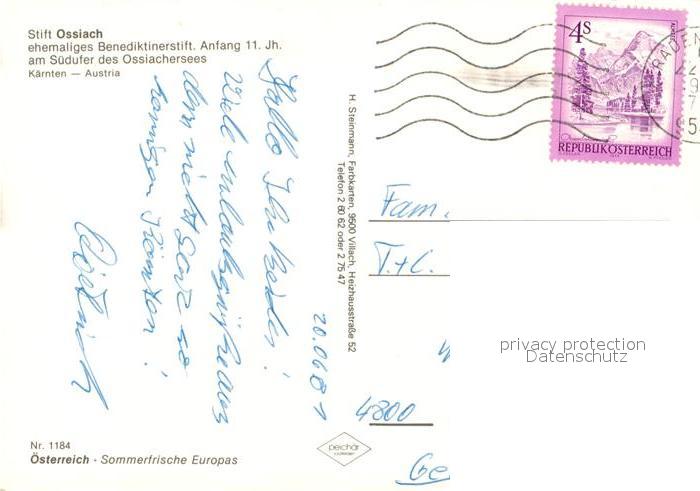 Stift Ossiach
ehemaliges Benediktinerstift. Anfang 11. Jh.
am Südufer des Ossiachersees
Kärnten — Austria
Hallo Ihr beiden!
Viele Urlaubsgrüße aus
dem nicht ganz so
sonnigen Kärnten!
20.06.81
H. Steinmann, Farbkarten, 9500 Villach, Heizhausstraße 52
Telefon 2 60 62 oder 2 75 47
4S
REPUBLIK ÖSTERREICH
Fam.
T.+C.
privacy protection
Datenschutz
4800
Ge
Nr. 1184
Österreich · Sommerfrische Europas